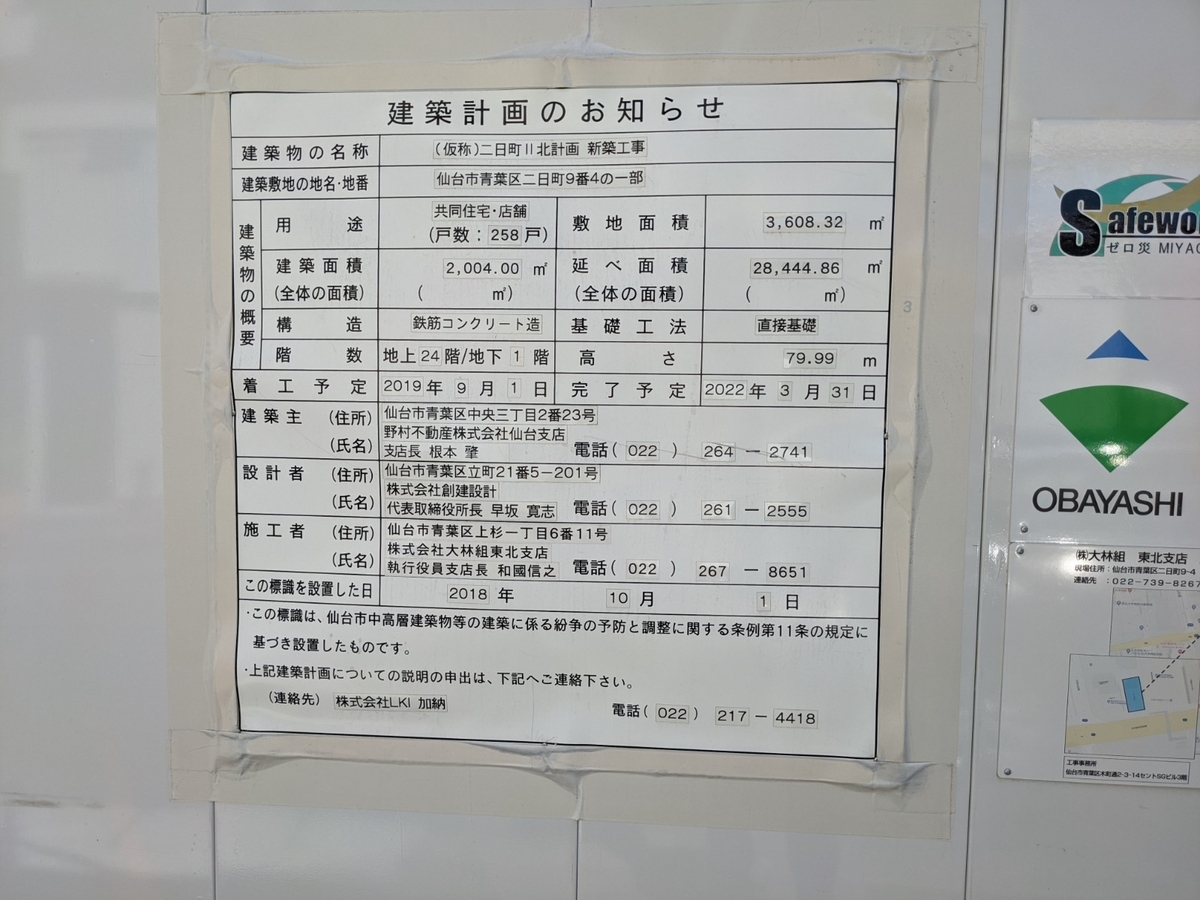 建築計画のお知らせ
建築物の名称 （仮称）二日町Ⅱ北計画 新築工事
建築敷地の地名・地番 仙台市青葉区二日町9番4の一部
建築物の概要
用途 共同住宅・店舗
（戸数：258戸）
敷地面積 3,608.32 ㎡
建築面積 2,004.00 ㎡ 延べ面積 28,444.86 ㎡
（全体の面積） （ ㎡） （全体の面積） （ ㎡）
構造 鉄筋コンクリート造 基礎工法 直接基礎
階数 地上24階/地下1階 高さ 79.99 m
着工予定 2019年9月1日 完了予定 2022年3月31日
建築主 （住所） 仙台市青葉区中央三丁目2番23号
（氏名） 野村不動産株式会社仙台支店
支店長 根本 肇 電話（022） 264－2741
設計者 （住所） 仙台市青葉区立町21番5－201号
（氏名） 株式会社創建設計
代表取締役所長 早坂 寛志 電話（022） 261－2555
施工者 （住所） 仙台市青葉区上杉一丁目6番11号
（氏名） 株式会社大林組東北支店
執行役員支店長 和國信之 電話（022） 267－8651
この標識を設置した日 2018年 10月 1日
・この標識は、仙台市中高層建築物等の建築に係る紛争の予防と調整に関する条例第11条の規定に
基づき設置したものです。
・上記建築計画についての説明の申出は、下記へご連絡下さい。
（連絡先） 株式会社LKI 加納 電話（022） 217－4418
3
Safewo
ゼロ災 MIYAG
OBAYASHI
㈱大林組 東北支店
現場住所：仙台市青葉区二日町9-4
連絡先 ：022-739-8267
工事事務所
仙台市青葉区木町通2-3-14セントSGビル3階